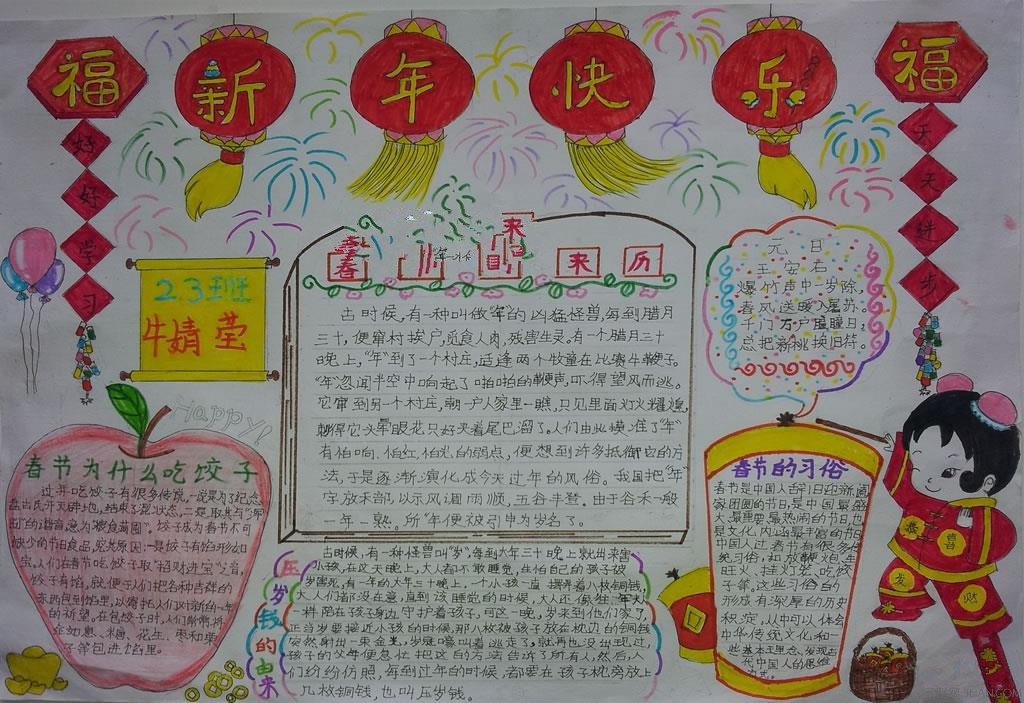 福
新
年
快
乐
福
好
好
学
习
天
天
进
步
2.3班
牛婧莹
春
来
来
历
古时候,有一种叫做“年”的凶猛怪兽,每到腊月
三十,便窜村挨户,觅食人肉,残害生灵。有一个腊月三十
晚上,“年”到了一个村庄,适逢两个牧童在比赛牛鞭子。
“年”忽闻半空中响起了啪啪的鞭声,吓得望风而逃。
它窜到另一个村庄,朝一户人家里一瞧,只见里面灯火辉煌,
刺得它头晕眼花只好夹着尾巴溜了。人们由此摸准了“年”
有怕响、怕红、怕光的弱点,便想到许多抵御它的方
法,于是逐渐演化成今天过年的风俗。我国把“年”
字放禾部,以示风调雨顺,五谷丰登。由于谷禾一般
一年一熟。所“年”便被引申为岁名了。
元日
王安石
爆竹声中一岁除,
春风送暖入屠苏。
千门万户曈曈日,
总把新桃换旧符。
Happy!
春节为什么吃饺子
过年吃饺子有很多传说,一说是为了纪念
盘古氏开天辟地,结束了混状态,二是取其与
的谐音,意为“粮食满囤”。饺子成为春节不可
缺少的节日食品,究其原因:一是饺子有馅形如
宝,人们在春节吃饺子取“招财进宝”之音,
饺子有馅,就便于人们把各种吉祥的
东西包到馅里,以寄托人们对新的一年
的祈望。在包饺子时,人们常常将
金如意、糖、花生、枣和栗
子等包进馅里。
压岁钱的由来
古时候,有一种怪兽叫“岁”,每到大年三十晚上就出来害
小孩,在这天晚上,大人都不敢睡觉,在怕自己的孩子被
岁害死,有一年的大年三十晚上,一个小孩一直摆弄着八枚铜钱,
大人们都没在意,直到该睡觉的时候,大人还像往年
一样陪在孩子身边守护着孩子,可这一晚,岁来到他们家了,
正当岁要接近小孩的时候,那八枚被孩子放在枕边的铜钱
突然射出一束金光,岁嚎叫着逃走了,就再也没出现过,
孩子的父母便急忙把这的方法告诉了所有人,然后人
们纷纷仿照,每到过年的时候,都要在孩子枕旁放上
几枚铜钱,也叫压岁钱。
春节的习俗
春节是中国人古年旧迎新阖
家团圆的节日,是中国最盛
大、最重要、最热闹的节日,也
是文化内涵最丰富的节日
中国人过春节有很多传
统习俗,如放鞭炮、包
饺子等。这些习俗的
形成有深厚的历史
积淀,从中可以体会
中华传统文化和一
些基本理念,发现古
代中国人的思维
方式。
恭
喜
发
财